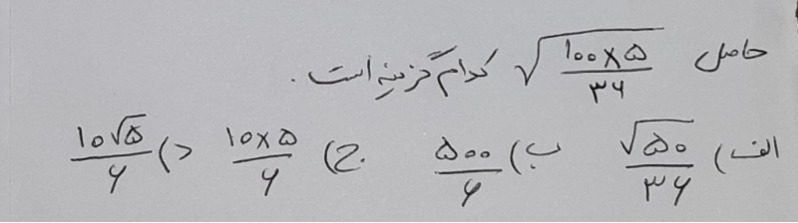 حاصل √(۱۰۰×۵/۳۶) کدام گزینه است.
الف) √۵۰/۳۶ ب) ۵۰۰/۶ ج) ۱۰×۵/۶ د) ۱۰√۵/۶